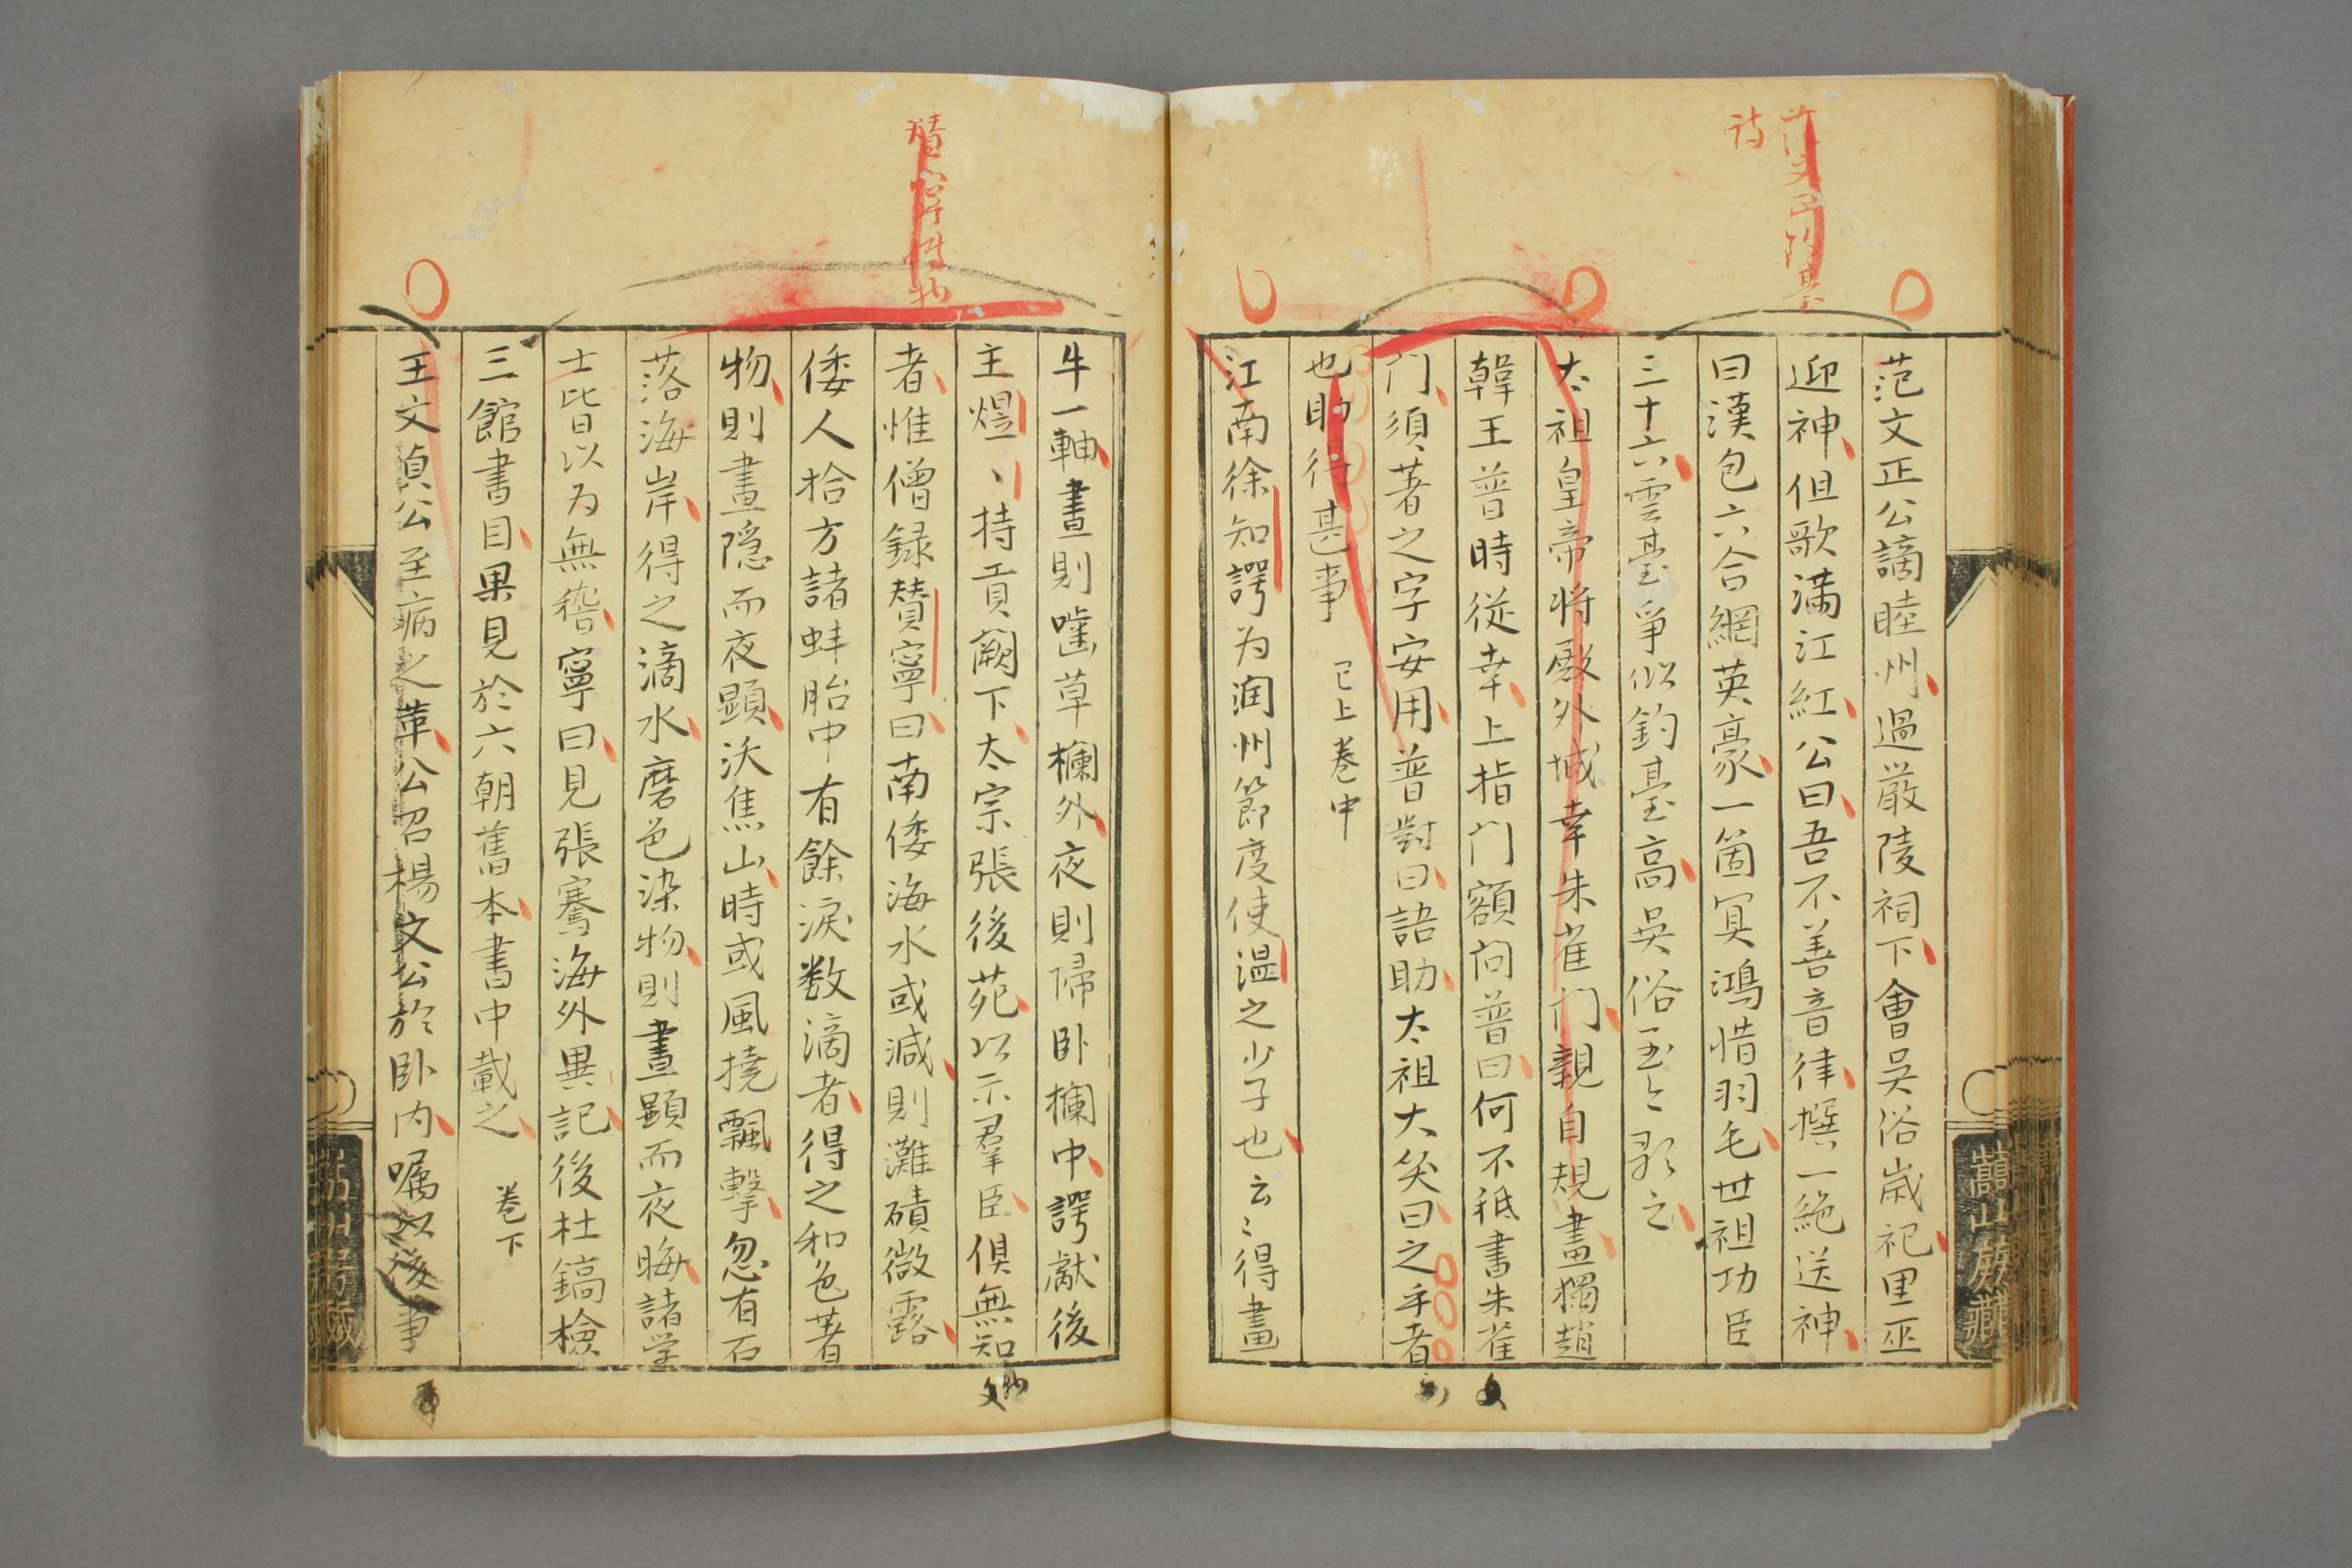 范文正公謫睦州過嚴陵祠下會吳俗歳祀里巫
迎神但歌滿江紅公曰吾不善音律撰一絶送神
曰漢包六合網英豪一箇冥鴻惜羽毛世祖功臣
三十六雲臺爭似釣臺高吳俗至今歌之
太祖皇帝将殿外城幸朱雀门親自規畫獨趙
韓王普時從幸上指门額问普曰何不祗書朱雀
门須著之字安用普對曰語助太祖大笑曰之乎者
也助得甚事 已上巻中
江南徐知諤为润州節度使温之少子也云〻得畫
牛一軸晝則囓草欄外夜則歸卧欄中諤献後
主煜〻持貢闕下太宗張後苑以示羣臣俱無知
者惟僧録賛寧曰南倭海水或減則灘磧微露
倭人拾方諸蚌胎中有餘淚数滴者得之和色著
物則晝隠而夜顕沃焦山時或風撓飄擊忽有石
落海岸得之滴水磨色染物則晝顕而夜晦諸学
士皆以为無稽寧曰見張騫海外異記後杜鎬檢
三館書目果見於六朝舊本書中載之 巻下
王文貞公至病之革公召楊文公於卧内嘱以後事
范文正釣臺
詩
賛寧博物